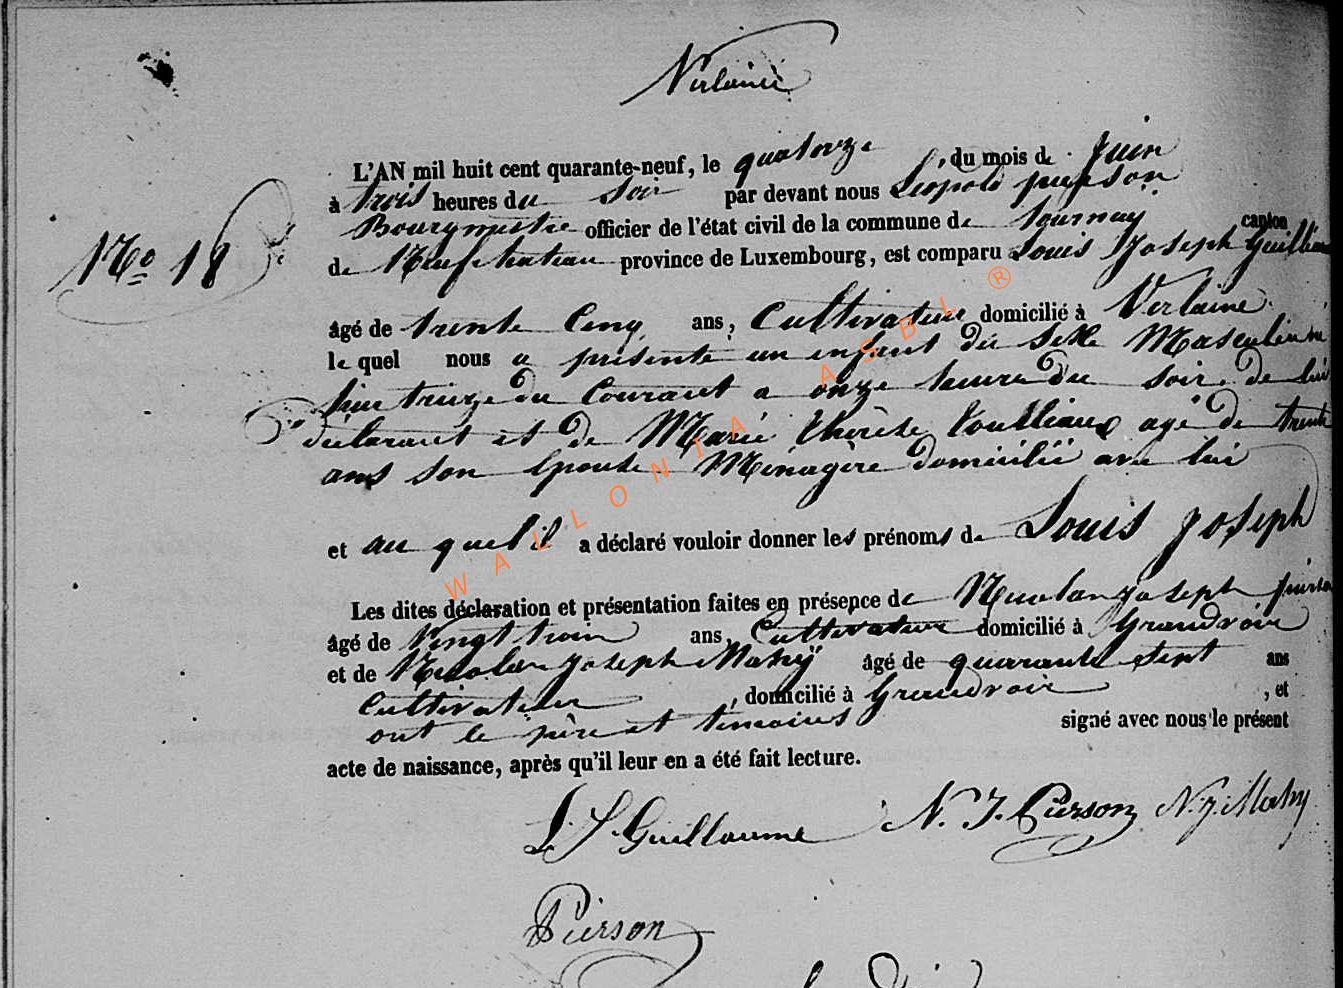 Verlaine
L'AN mil huit cent quarante-neuf, le quatorze, du mois de Juin
à trois heures du soir par devant nous Léopold pierson
Bourgmestre officier de l'état civil de la commune de tournay canton
de Neufchateau province de Luxembourg, est comparu Louis Joseph Guillaume
No 18
âgé de trente Cinq ans, Cultivateur domicilié à Verlaine
le quel nous a présenté un enfant du sexe Masculin né
hier treize du Courant a onze heure du soir de lui
déclarant et de Marie thérèse agé de trente
ans son épouse Ménagère domicilié avec lui
et au quel il a déclaré vouloir donner les prénoms de Louis Joseph
Les dites déclaration et présentation faites en présence de Nicolas joseph pierson
âgé de Vingt trois ans, Cultivateur domicilié à Grandvoir
et de Nicolas Joseph Mahy âgé de quarante sept ans
Cultivateur, domicilié à Grandvoir, et
ont le père et témoins signé avec nous le présent
acte de naissance, après qu'il leur en a été fait lecture.
L. J. Guillaume N. J. Pierson N. J. Mahy
Pierson
WALLONIA ASBL ®